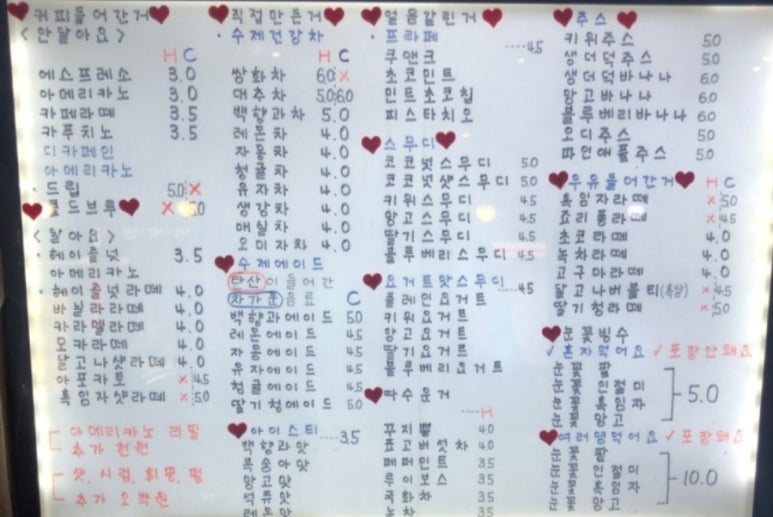 커피들어간거
< 안달아요 >
H C
에스프레소 3.0
아메리카노 3.0
카페라떼 3.5
카푸치노 3.5
디카페인
아메리카노
· 드립 5.0 ×
콜드브루 × 5.0
< 달아요 >
· 헤이즐넛 3.5
아메리카노
· 헤이즐넛라떼 4.0
바닐라라떼 4.0
카라멜라떼 4.0
모카라떼 4.0
달고나샷라떼 4.0
아포카토 × 4.5
흑임자샷라떼 × 5.0
아메리카노 리필
추가 천원
샷, 시럽, 휘핑, 펄
추가 오백원
직접만든거
· 수제건강차
H C
쌍화차 6.0 ×
대추차 5.0 6.0
백향과차 5.0
레몬차 4.0
자몽차 4.0
청귤차 4.0
유자차 4.0
생강차 4.0
매실차 4.0
오미자차 4.0
수제에이드
탄산이들어간
차가운음료 C
백향과에이드 5.0
레몬에이드 4.5
자몽에이드 4.5
유자에이드 4.5
청귤에이드 4.5
딸기청에이드 5.0
아이스티 3.5
백향과맛
복숭아맛
망고맛
석류맛
레몬맛
얼음갈린거
· 프라페 4.5
쿠앤크
초코민트
민트초코칩
피스타치오
스무디
코코넛스무디 5.0
코코넛샷스무디 5.0
키위스무디 4.5
망고스무디 4.5
딸기스무디 4.5
블루베리스무디 4.5
요거트맛스무디 4.5
플레인요거트
키위요거트
망고요거트
딸기요거트
블루베리요거트
따수운거
H
4.0
표고버섯차 4.0
페퍼민트 3.5
루이보스 3.5
국화차 3.5
녹차 3.5
주스
키위주스 5.0
생더덕주스 5.0
생더덕바나나 6.0
망고바나나 6.0
블루베리바나나 6.0
오디주스 5.0
파인애플주스 5.0
우유들어간거 H C
흑임자라떼 × 5.0
× 4.5
초코라떼 4.0
녹차라떼 4.0
고구마라떼 4.0
달고나버블티(흑당) × 4.5
딸기청라떼 × 5.0
눈꽃빙수
✓ 혼자먹어요 ✓ 포장안돼요
눈꽃 팥
눈꽃 인절미
눈꽃 흑임자
눈꽃 망고
5.0
여러명먹어요 ✓ 포장돼요
눈꽃 팥
눈꽃 인절미
눈꽃 흑임자
눈꽃 망고
10.0